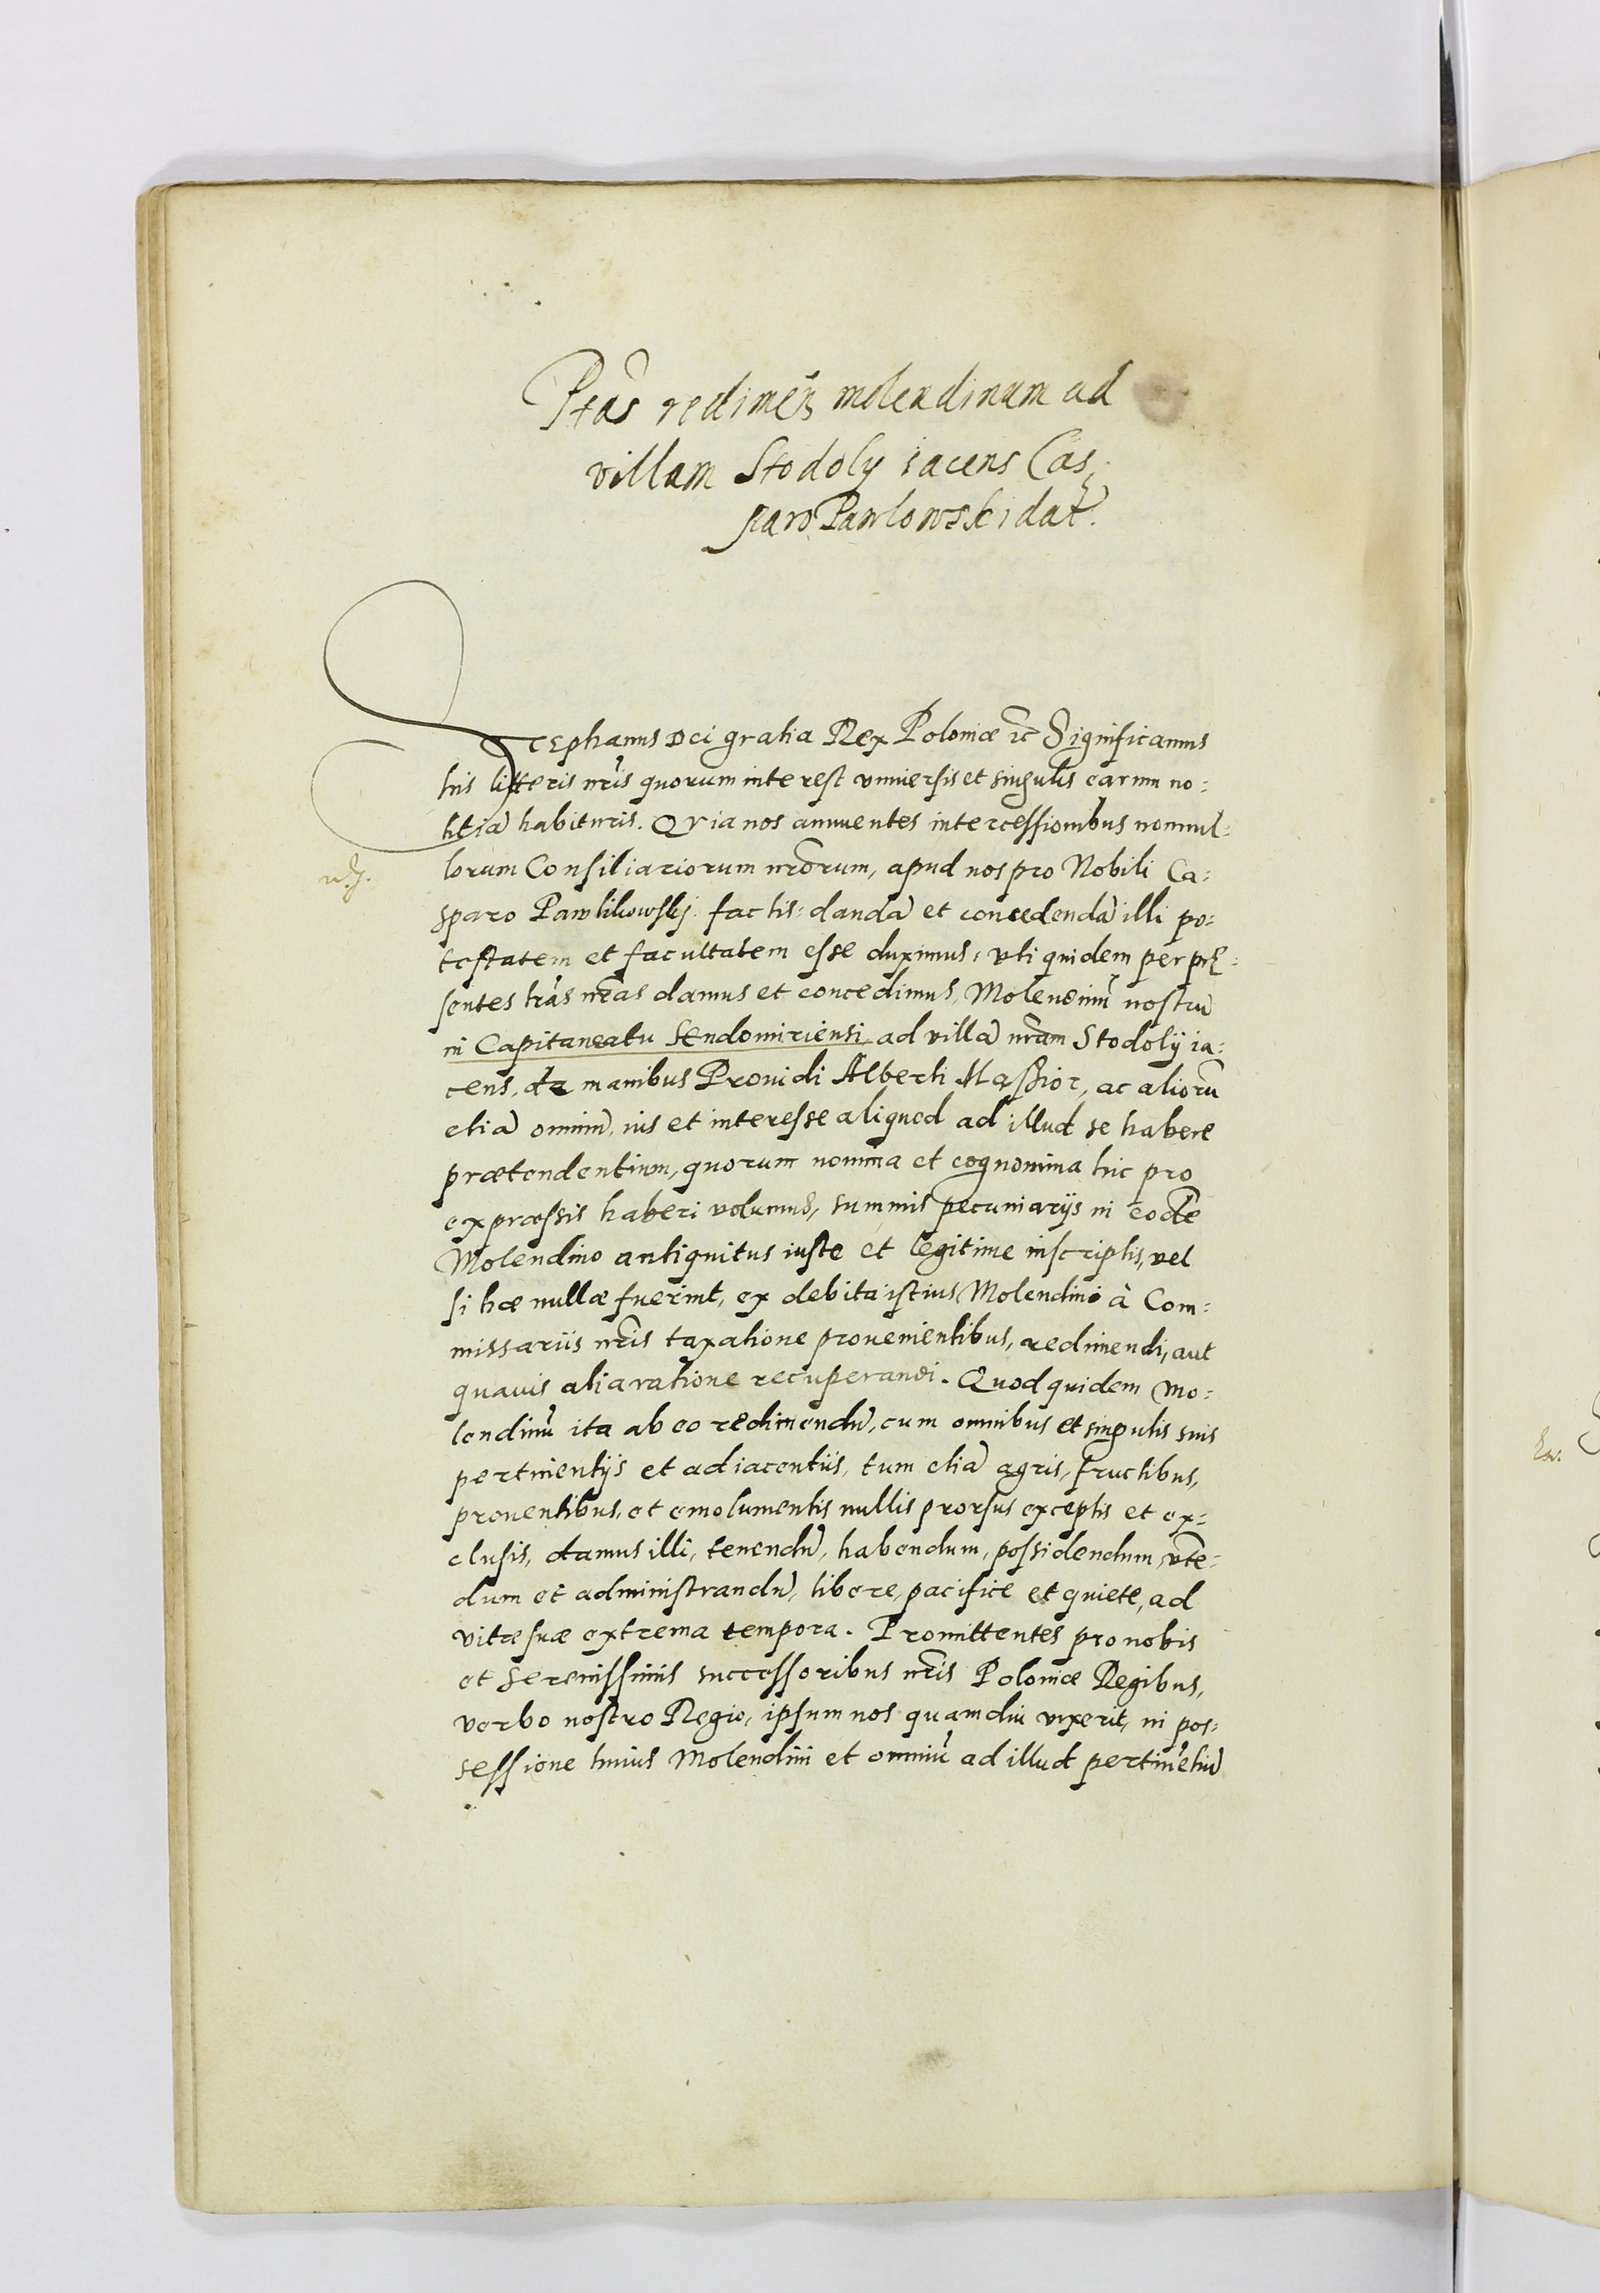 Ptas̃ redimeñ molendinum ad
villam Stodoly iacens Cas-
paro Pawlowski dat̃.
Stephanus Dei gratia Rex Poloniæ etc̃ Significamus
his litteris nr̃is quorum interest vniuersis et singulis earum no-
titiã habituris. Quia nos annuentes intercessionibus nonnul-
lorum Consiliariorum nr̃orum, apud nos pro Nobili Ca-
sparo Pawlikowskij factis: dandã et concedendã illi po-
testatem et facultatem esse duximus, vti quidem per præ-
sentes lr̃as nr̃as damus et concedimus, Molendinũ nostrũ
in Capitaneatu Sendomiriensi ad villã nr̃am Stodolÿ ia-
cens, de manibus Prouidi Alberti, ac aliorũ
etiã omniũ, ius et interesse aliquod ad illud se habere
prætendentium, quorum nomina et cognomina hic pro
expræssis haberi volumus, summis pecuniarijs in eodẽ
Molendino antiquitus iuste et legitime inscriptis, vel
si hæ nullæ fuerint, ex debita istius Molendini à Com-
missariis nr̃is taxatione prouenientibus, redimendi, aut
quauis alia ratione recuperandi. Quod quidem Mo-
lendinũ ita ab eo redimendũ, cum omnibus et singulis suis
pertinentijs et adiacentiis, tum etiã agris, fructibus,
prouentibus, et emolumentis nullis prorsus exceptis et ex-
clusis, damus illi, tenendũ, habendum, possidendum, vtẽ-
dum et administrandũ, libere, pacifice et quiete, ad
vitæ suæ extrema tempora. Promittentes pro nobis
et Serenissimis successoribus nr̃is Poloniæ Regibus,
verbo nostro Regio, ipsum nos quamdiu vixerit, in pos-
sessione huius Molendini et omniũ ad illud pertinẽtiũ